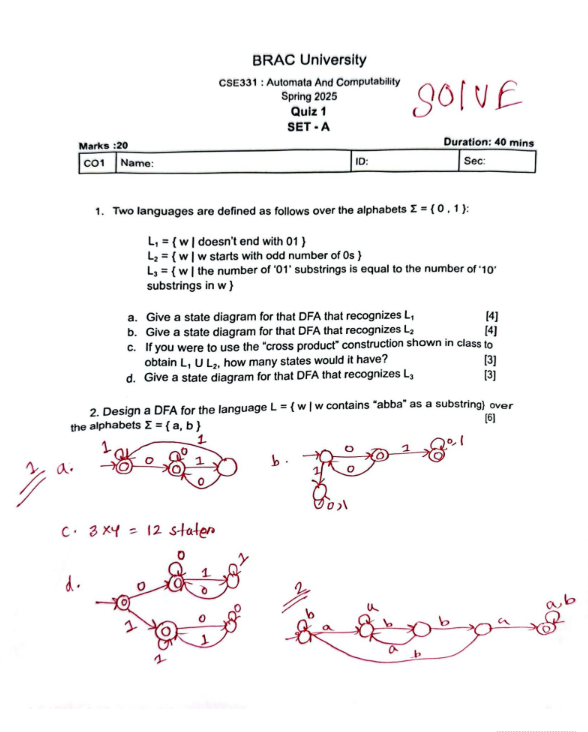 BRAC University
CSE331 : Automata And Computability
Spring 2025
Quiz 1
SET - A
SOLVE
Marks :20
Duration: 40 mins
CO1 Name: ID: Sec:
1. Two languages are defined as follows over the alphabets Σ = { 0 , 1 }:
L₁ = { w | doesn't end with 01 }
L₂ = { w | w starts with odd number of 0s }
L₃ = { w | the number of '01' substrings is equal to the number of '10'
substrings in w }
a. Give a state diagram for that DFA that recognizes L₁ [4]
b. Give a state diagram for that DFA that recognizes L₂ [4]
c. If you were to use the "cross product" construction shown in class to
obtain L₁ U L₂, how many states would it have? [3]
d. Give a state diagram for that DFA that recognizes L₃ [3]
2. Design a DFA for the language L = { w | w contains "abba" as a substring} over
the alphabets Σ = { a, b } [6]
1
a.
1 0 0 1 1 0
b.
0 0 1 0,1
1 0,1
c. 3 x 4 = 12 states
d.
0 0 1 0 1
1 1 0 1 0
2
b a a b a b a a,b
b